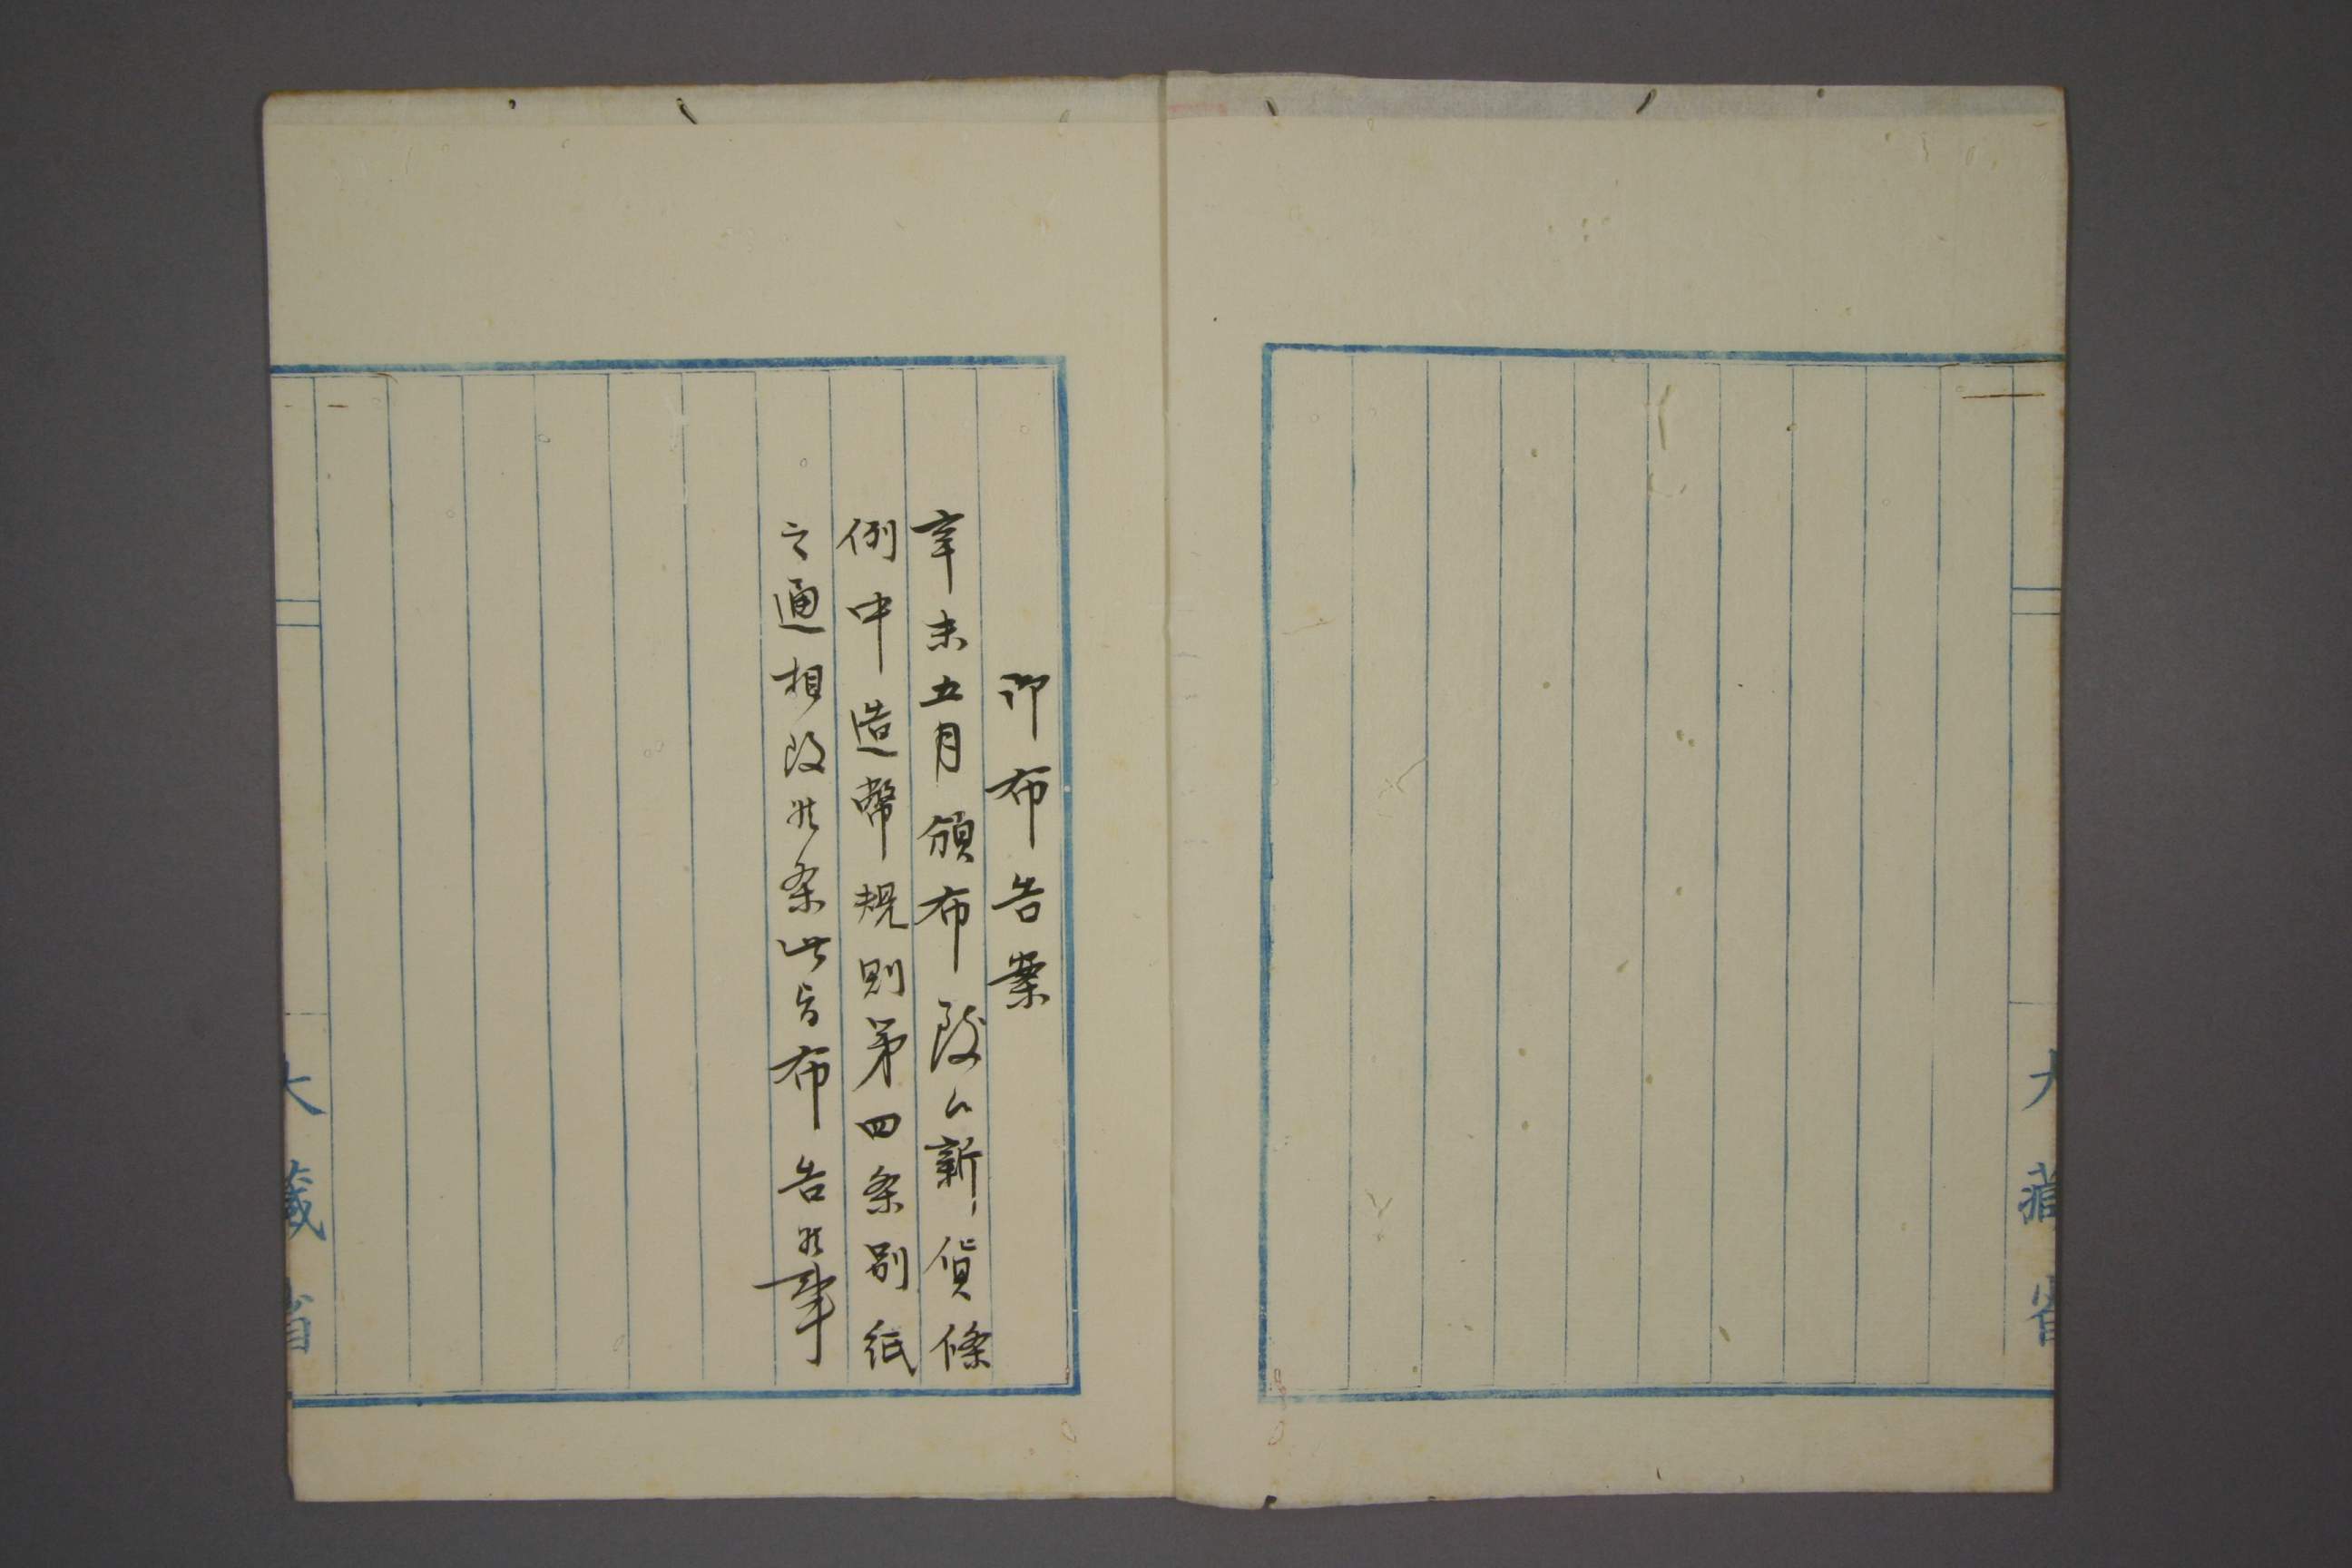 大藏省
御布告案
辛未五月頒布致候新貨條
例中造幣規則第四条別紙
之通相改候条此旨布告候事
大藏省